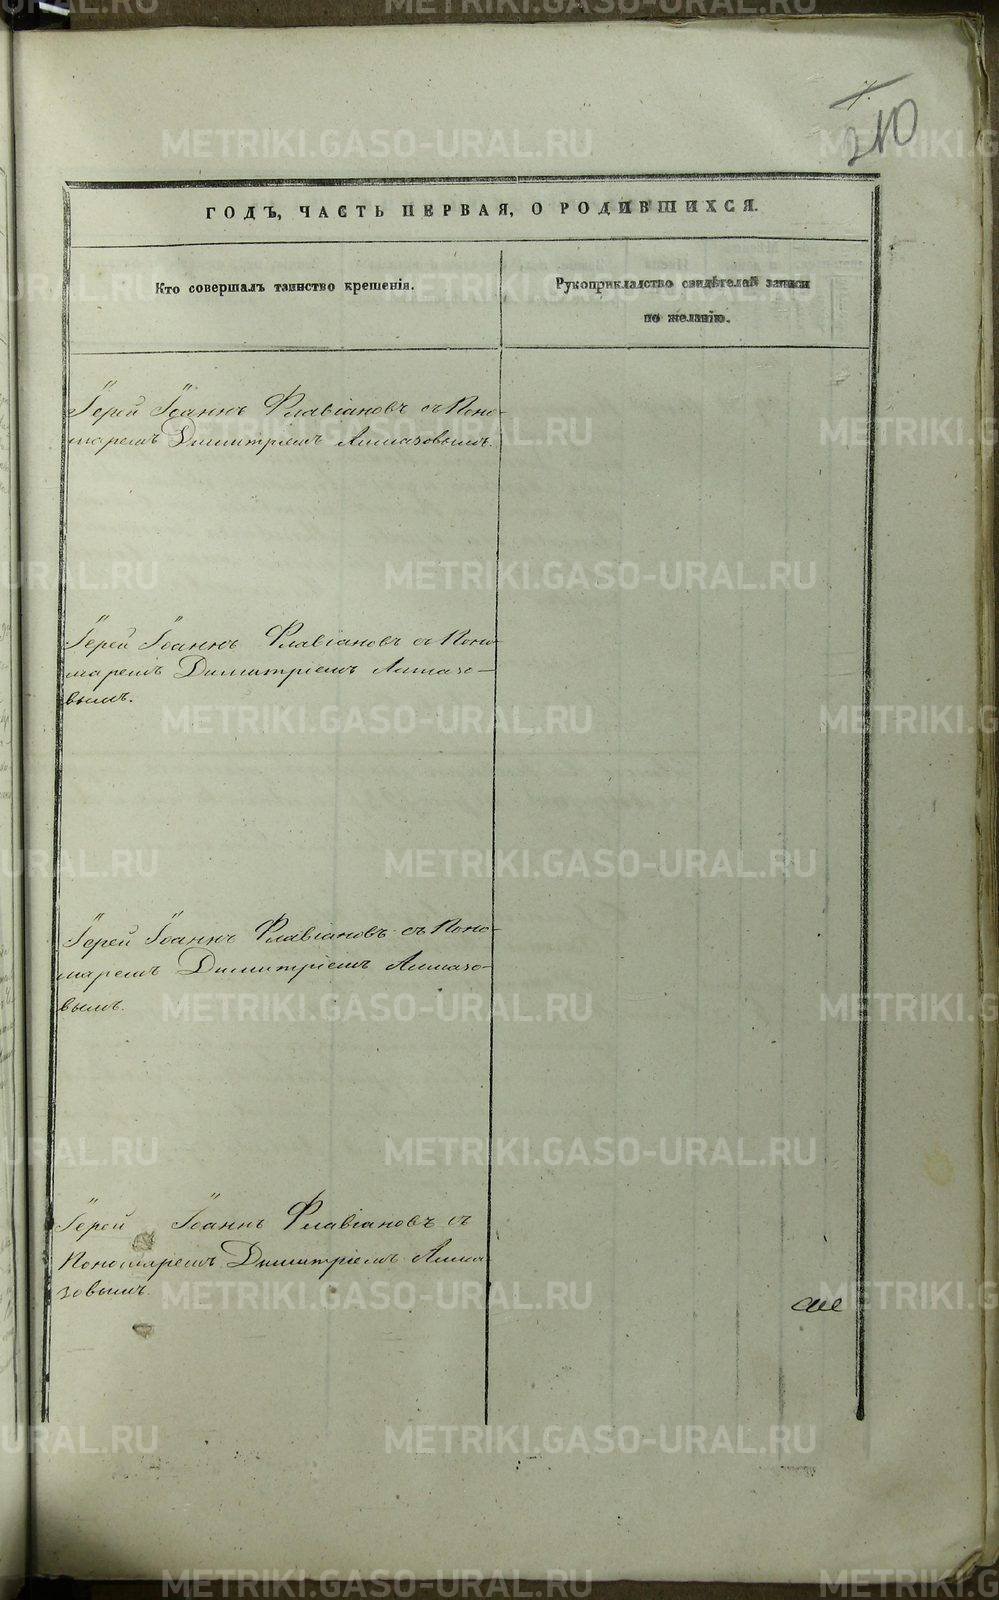 7.
210
ГОДЪ, ЧАСТЬ ПЕРВАЯ, О РОДИВШИХСЯ.
Кто совершалъ таинство крещенія.
Рукоприкладство свидѣтелей записи
по желанію.
Іерей Іоаннъ Флавіановъ съ Поно-
маремъ Димитріемъ Алмазовымъ.
Іерей Іоаннъ Флавіановъ съ Поно-
маремъ Димитріемъ Алмазо-
вымъ.
Іерей Іоаннъ Флавіановъ съ Поно-
маремъ Димитріемъ Алмазо-
вымъ.
Іерей Іоаннъ Флавіановъ съ
Пономаремъ Димитріемъ Алма-
зовымъ.
METRIKI.GASO-URAL.RU